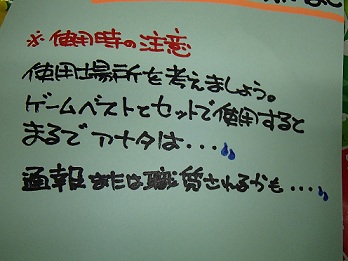 ※使用時の注意
使用場所を考えましょう。
ゲームベストとセットで使用すると
まるでアナタは・・・
通報または職質されるかも・・・